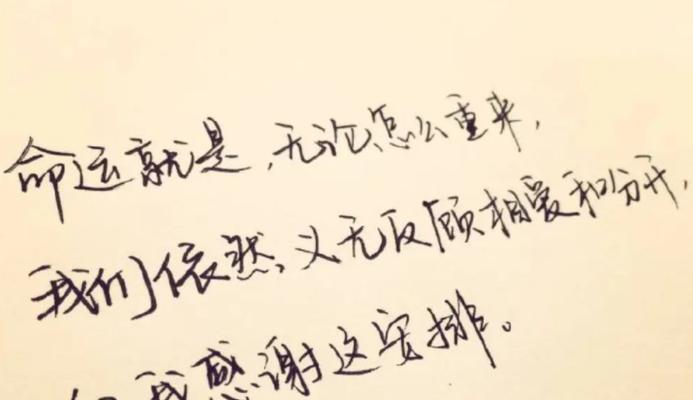 命运就是,无论怎么重来,
我们依然,义无反顾相爱和分开,
我感谢这安排。